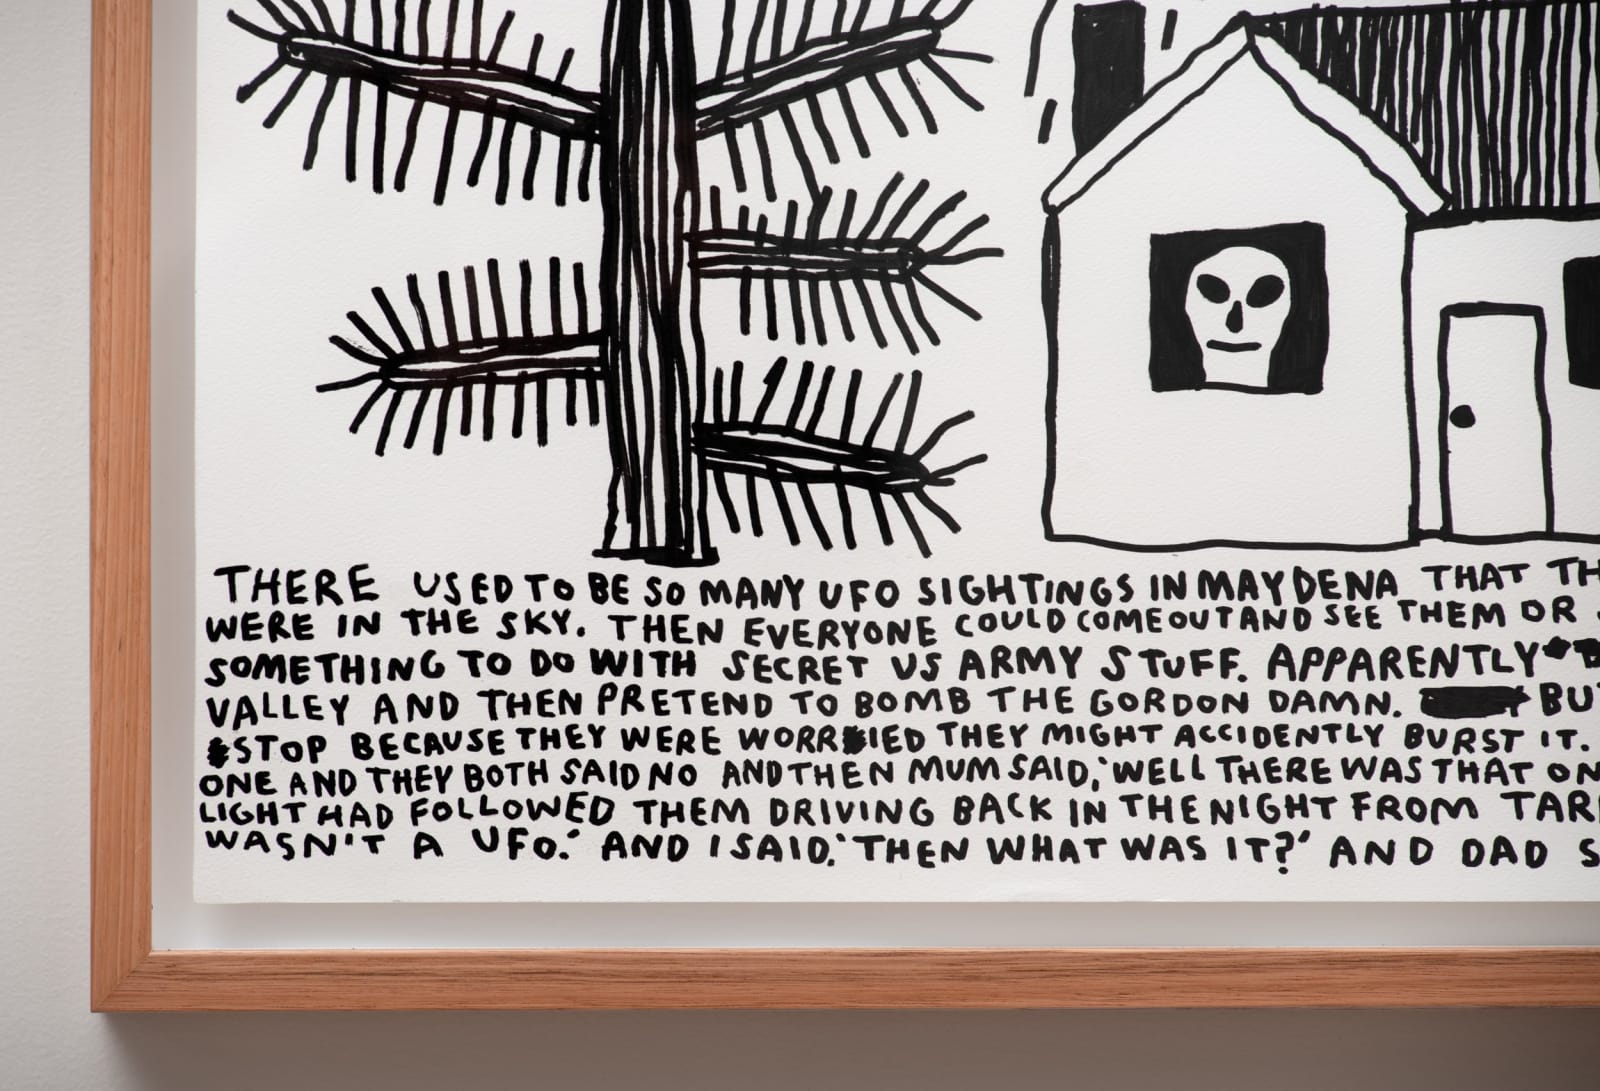 THERE USED TO BE SO MANY UFO SIGHTINGS IN MAYDENA THAT TH
WERE IN THE SKY. THEN EVERYONE COULD COME OUT AND SEE THEM OR
SOMETHING TO DO WITH SECRET US ARMY STUFF. APPARENTLY
VALLEY AND THEN PRETEND TO BOMB THE GORDON DAMN. BU
STOP BECAUSE THEY WERE WORRIED THEY MIGHT ACCIDENTLY BURST IT.
ONE AND THEY BOTH SAID NO AND THEN MUM SAID, 'WELL THERE WAS THAT ON
LIGHT HAD FOLLOWED THEM DRIVING BACK IN THE NIGHT FROM TAR
WASN'T A UFO.' AND I SAID, 'THEN WHAT WAS IT?' AND DAD S